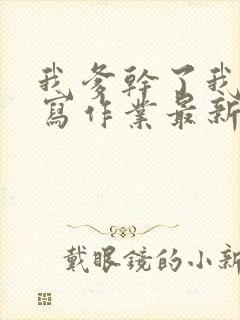 我爹幹了我
寫作業最新
戴眼鏡的小新